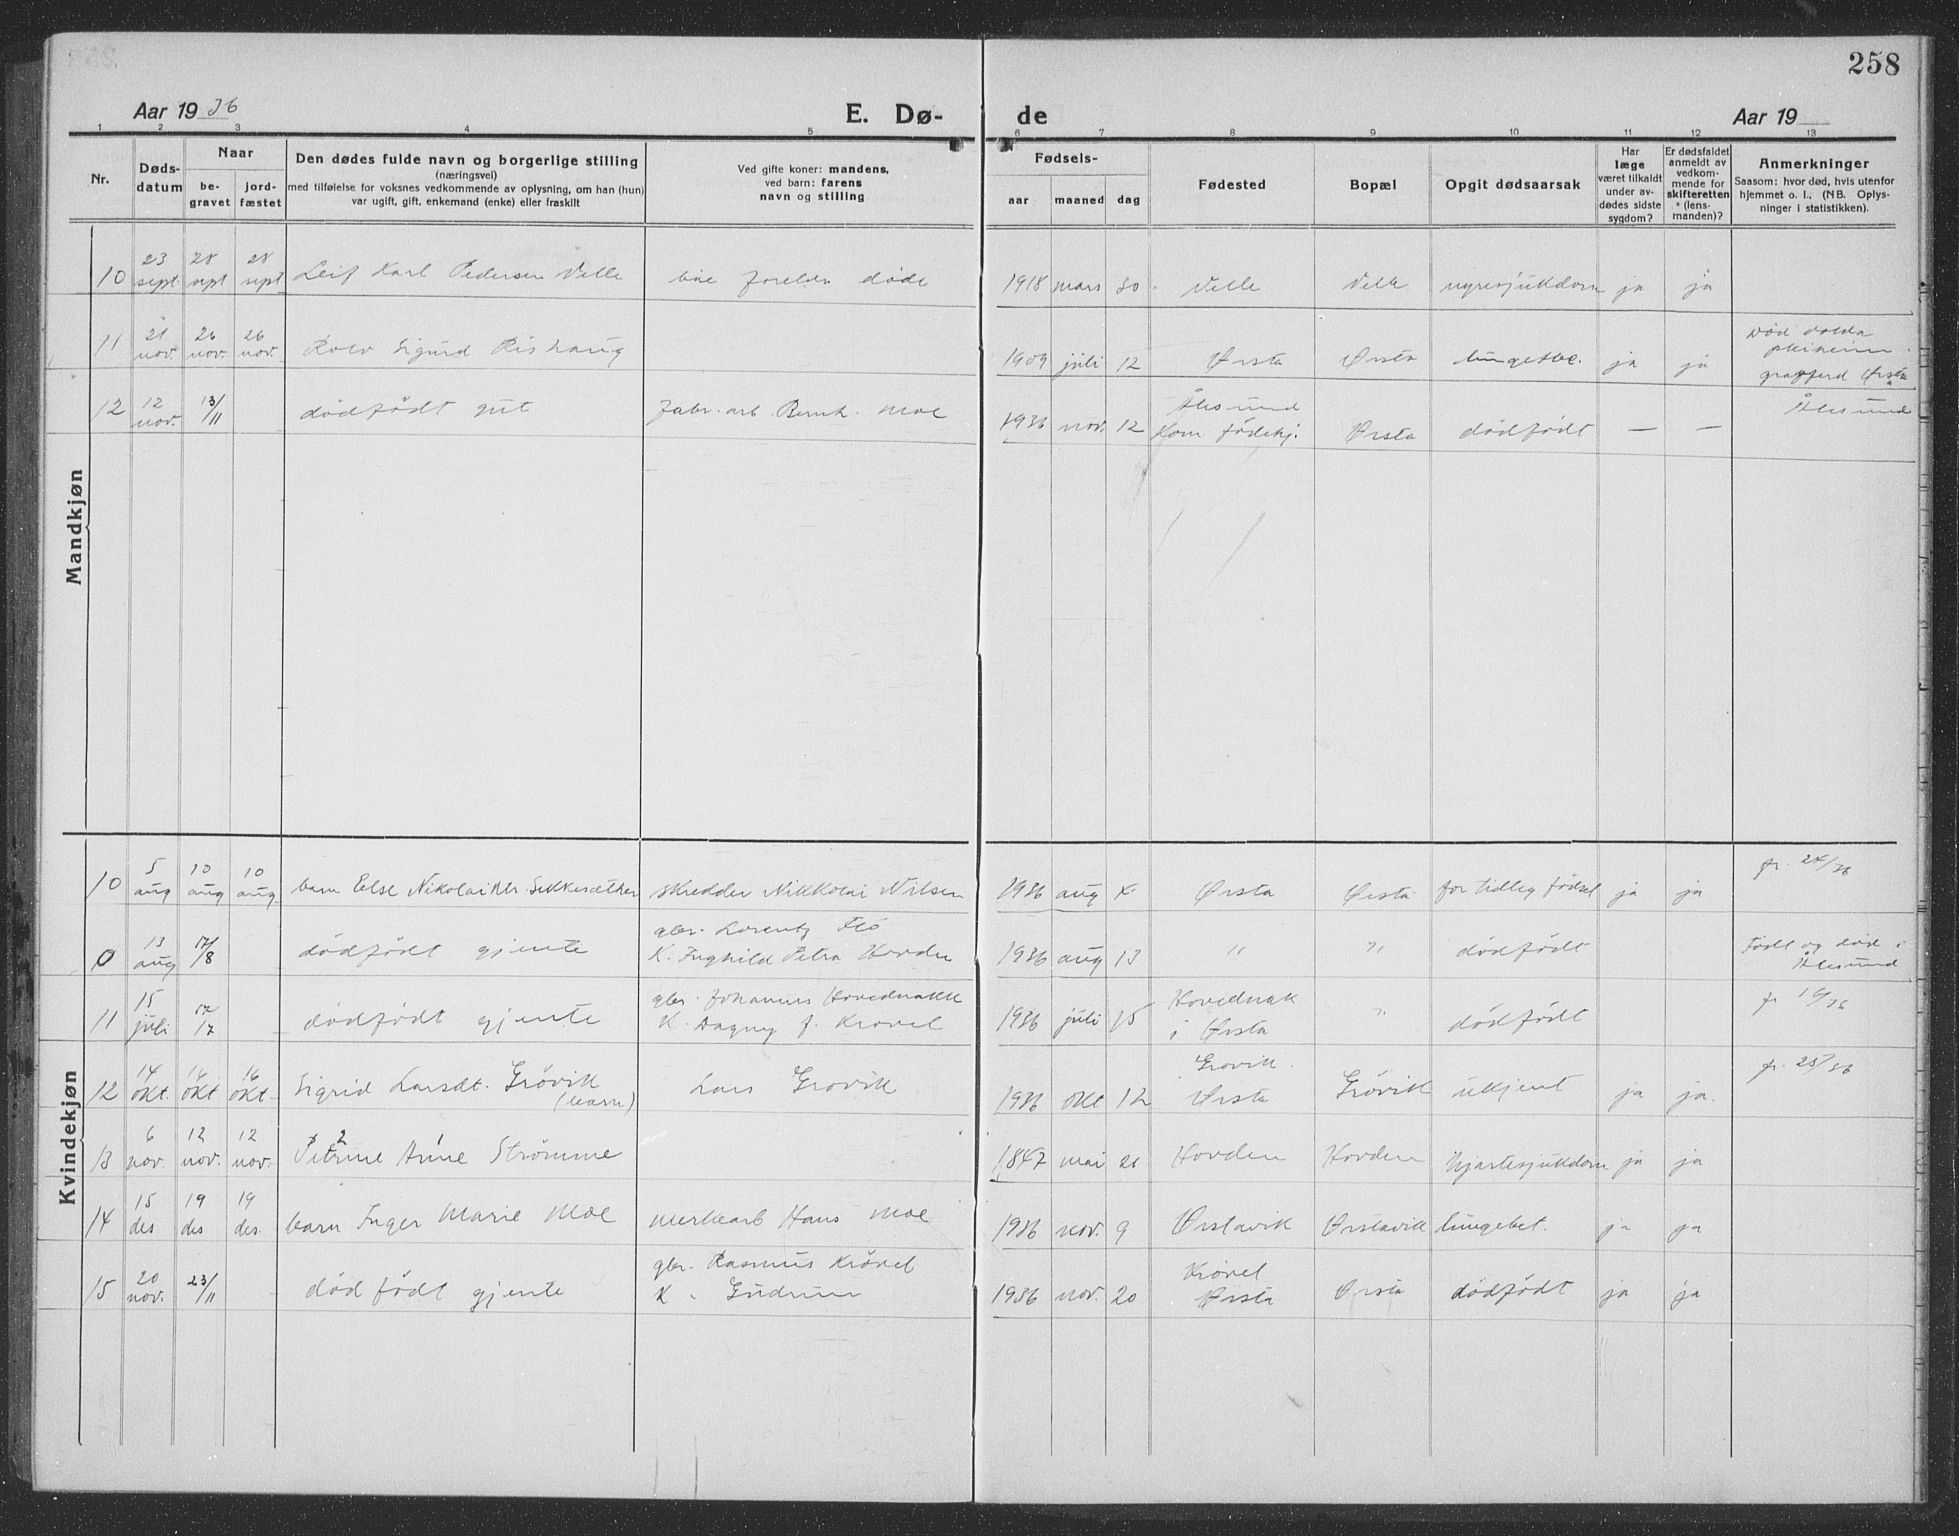 258
Aar 19 36
E. Dø-
de
Aar 19
1 2 3 4 5 6 7 8 9 10 11 12 13
Nr.
Døds-
datum
Naar
be-
gravet
jord-
fæstet
Den dødes fulde navn og borgerlige stilling
(næringsvei)
med tilføielse for voksnes vedkommende av oplysning, om han (hun)
var ugift, gift, enkemand (enke) eller fraskilt
Ved gifte koner: mandens,
ved barn: farens
navn og stilling
Fødsels-
aar maaned dag
Fødested
Bopæl
Opgit dødsaarsak
Har
læge
været tilkaldt
under av-
dødes sidste
sygdom?
Er dødsfaldet
anmeldt av
vedkom-
mende for
skifteretten
* (lens-
manden)?
Anmerkninger
Saasom: hvor død, hvis utenfor
hjemmet o. l., (NB. Oplys-
ninger i statistikken).
Mandkjøn
23 28 28
10 sept. sept sept Leif Karl Pedersen Velle døde 1918 mars 30 Velle Velle nyresjukdom ja ja
21 26 26
11 nov. nov. nov. Rolv Sigurd Rishaug 1909 juli 12 Ørsta Ørsta ja ja
gravferd Ørsta
12 12 13/11 dødfødt gut fabr. arb. Bernh. Moe Ålesund Ålesund
nov. 1936 nov. 12 Kom. fødehj. Ørsta dødfødt — —
Kvindekjøn
5 10 10 fr. 24/36
10 aug aug aug. barn Else Nikolai skredder Nikkolai Nilsen 1936 aug Ørsta Ørsta for tidleg fødsel ja ja
13 17/8 gbr. Lorentz Flø
0 aug dødfødt gjente K. Inghild Petra Hovden 1936 aug 13 " " dødfødt Født og død i
Ålesund
15 17 gbr. Johannes Hovednakk Hovednak fr 19/36
11 juli 17 dødfødt gjente K. Dagny J. Krøvel 1936 juli 15 i Ørsta " dødfødt
14 14 16 Grøvik. fr. 25/36
12 okt. okt okt. Sigrid Larsdt. Grøvik Lars Grøvik 1936 okt 12 Ørsta Grøvik ukjent ja ja.
(barn)
6 12 12
13 nov. nov. nov. Petrine Anne Strømme 1847 mai 21 Hovden Hovden hjartesjukdom ja ja
15 19 19
14 des des des. barn Inger Marie Moe Hans Moe 1936 nov. 9 Ørstavik Ørstavik lungebet. ja ja
20 23/11 gbr. Rasmus Krøvel Krøvel
15 nov. dødfødt gjente K. Gudrun 1936 nov. 20 Ørsta Ørsta dødfødt ja ja